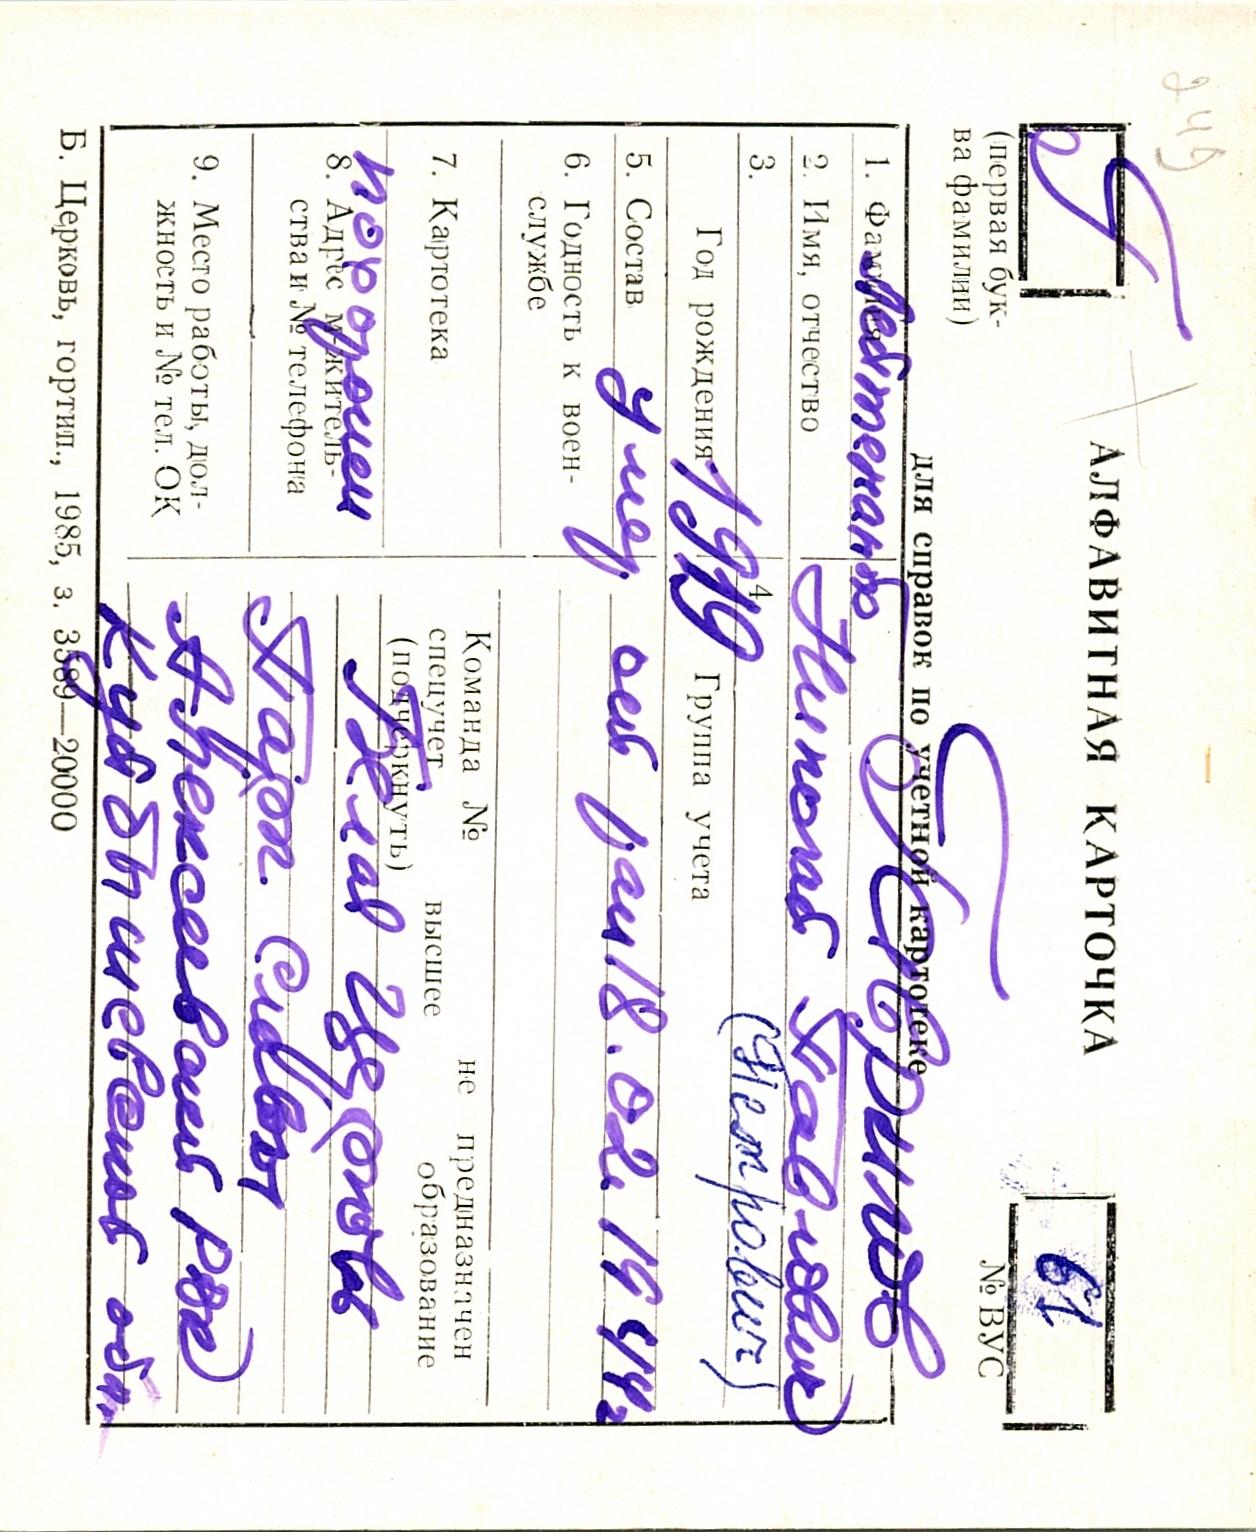 249
Б
(первая бук-
ва фамилии)
АЛФАВИТНАЯ КАРТОЧКА
для справок по учетной картотеке
61
№ ВУС
1. Фамилия Лейтенант
2. Имя, отчество Николай Павлович
(Петрович)
3. Год рождения 1919
4 Группа учета
5. Состав умер от ран 18.02.1944г
6. Годность к воен-
службе
7. Картотека
Команда № не предназначен
спецучет высшее образование
(подчеркнуть)
похоронен
8. Адрес м/житель-
ства и № телефона
9. Место работы, дол-
жность и № тел. ОК
Алексеевский р-он
Куйбышевской обл.
Б. Церковь, гортип., 1985, з. 3589—20000